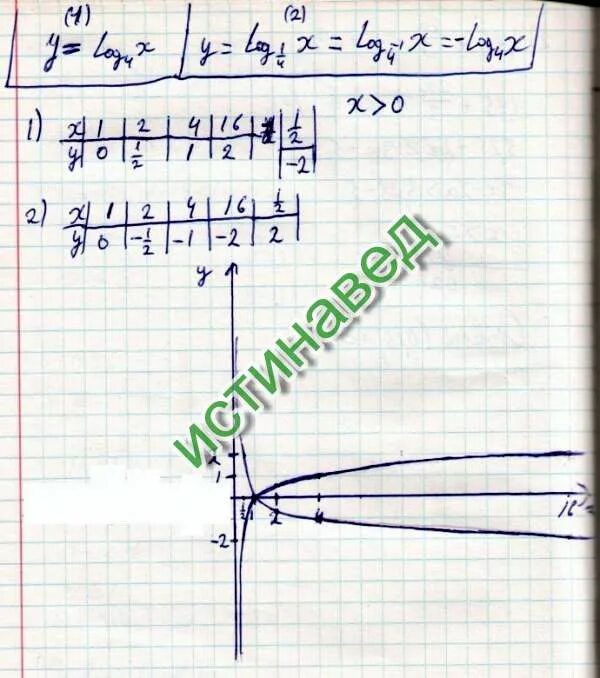 (1) (2)
y = log₄x | y = log_{1/4} x = log_{4⁻¹} x = -log₄x
1) x | 1 | 2 | 4 | 16 | 1/2 | x > 0
y | 0 | 1/2 | 1 | 2 | -2
2) x | 1 | 2 | 4 | 16 | 1/2
y | 0 | -1/2 | -1 | -2 | 2
y
истинавед
2
1
1/2 1 2 4 16
-2